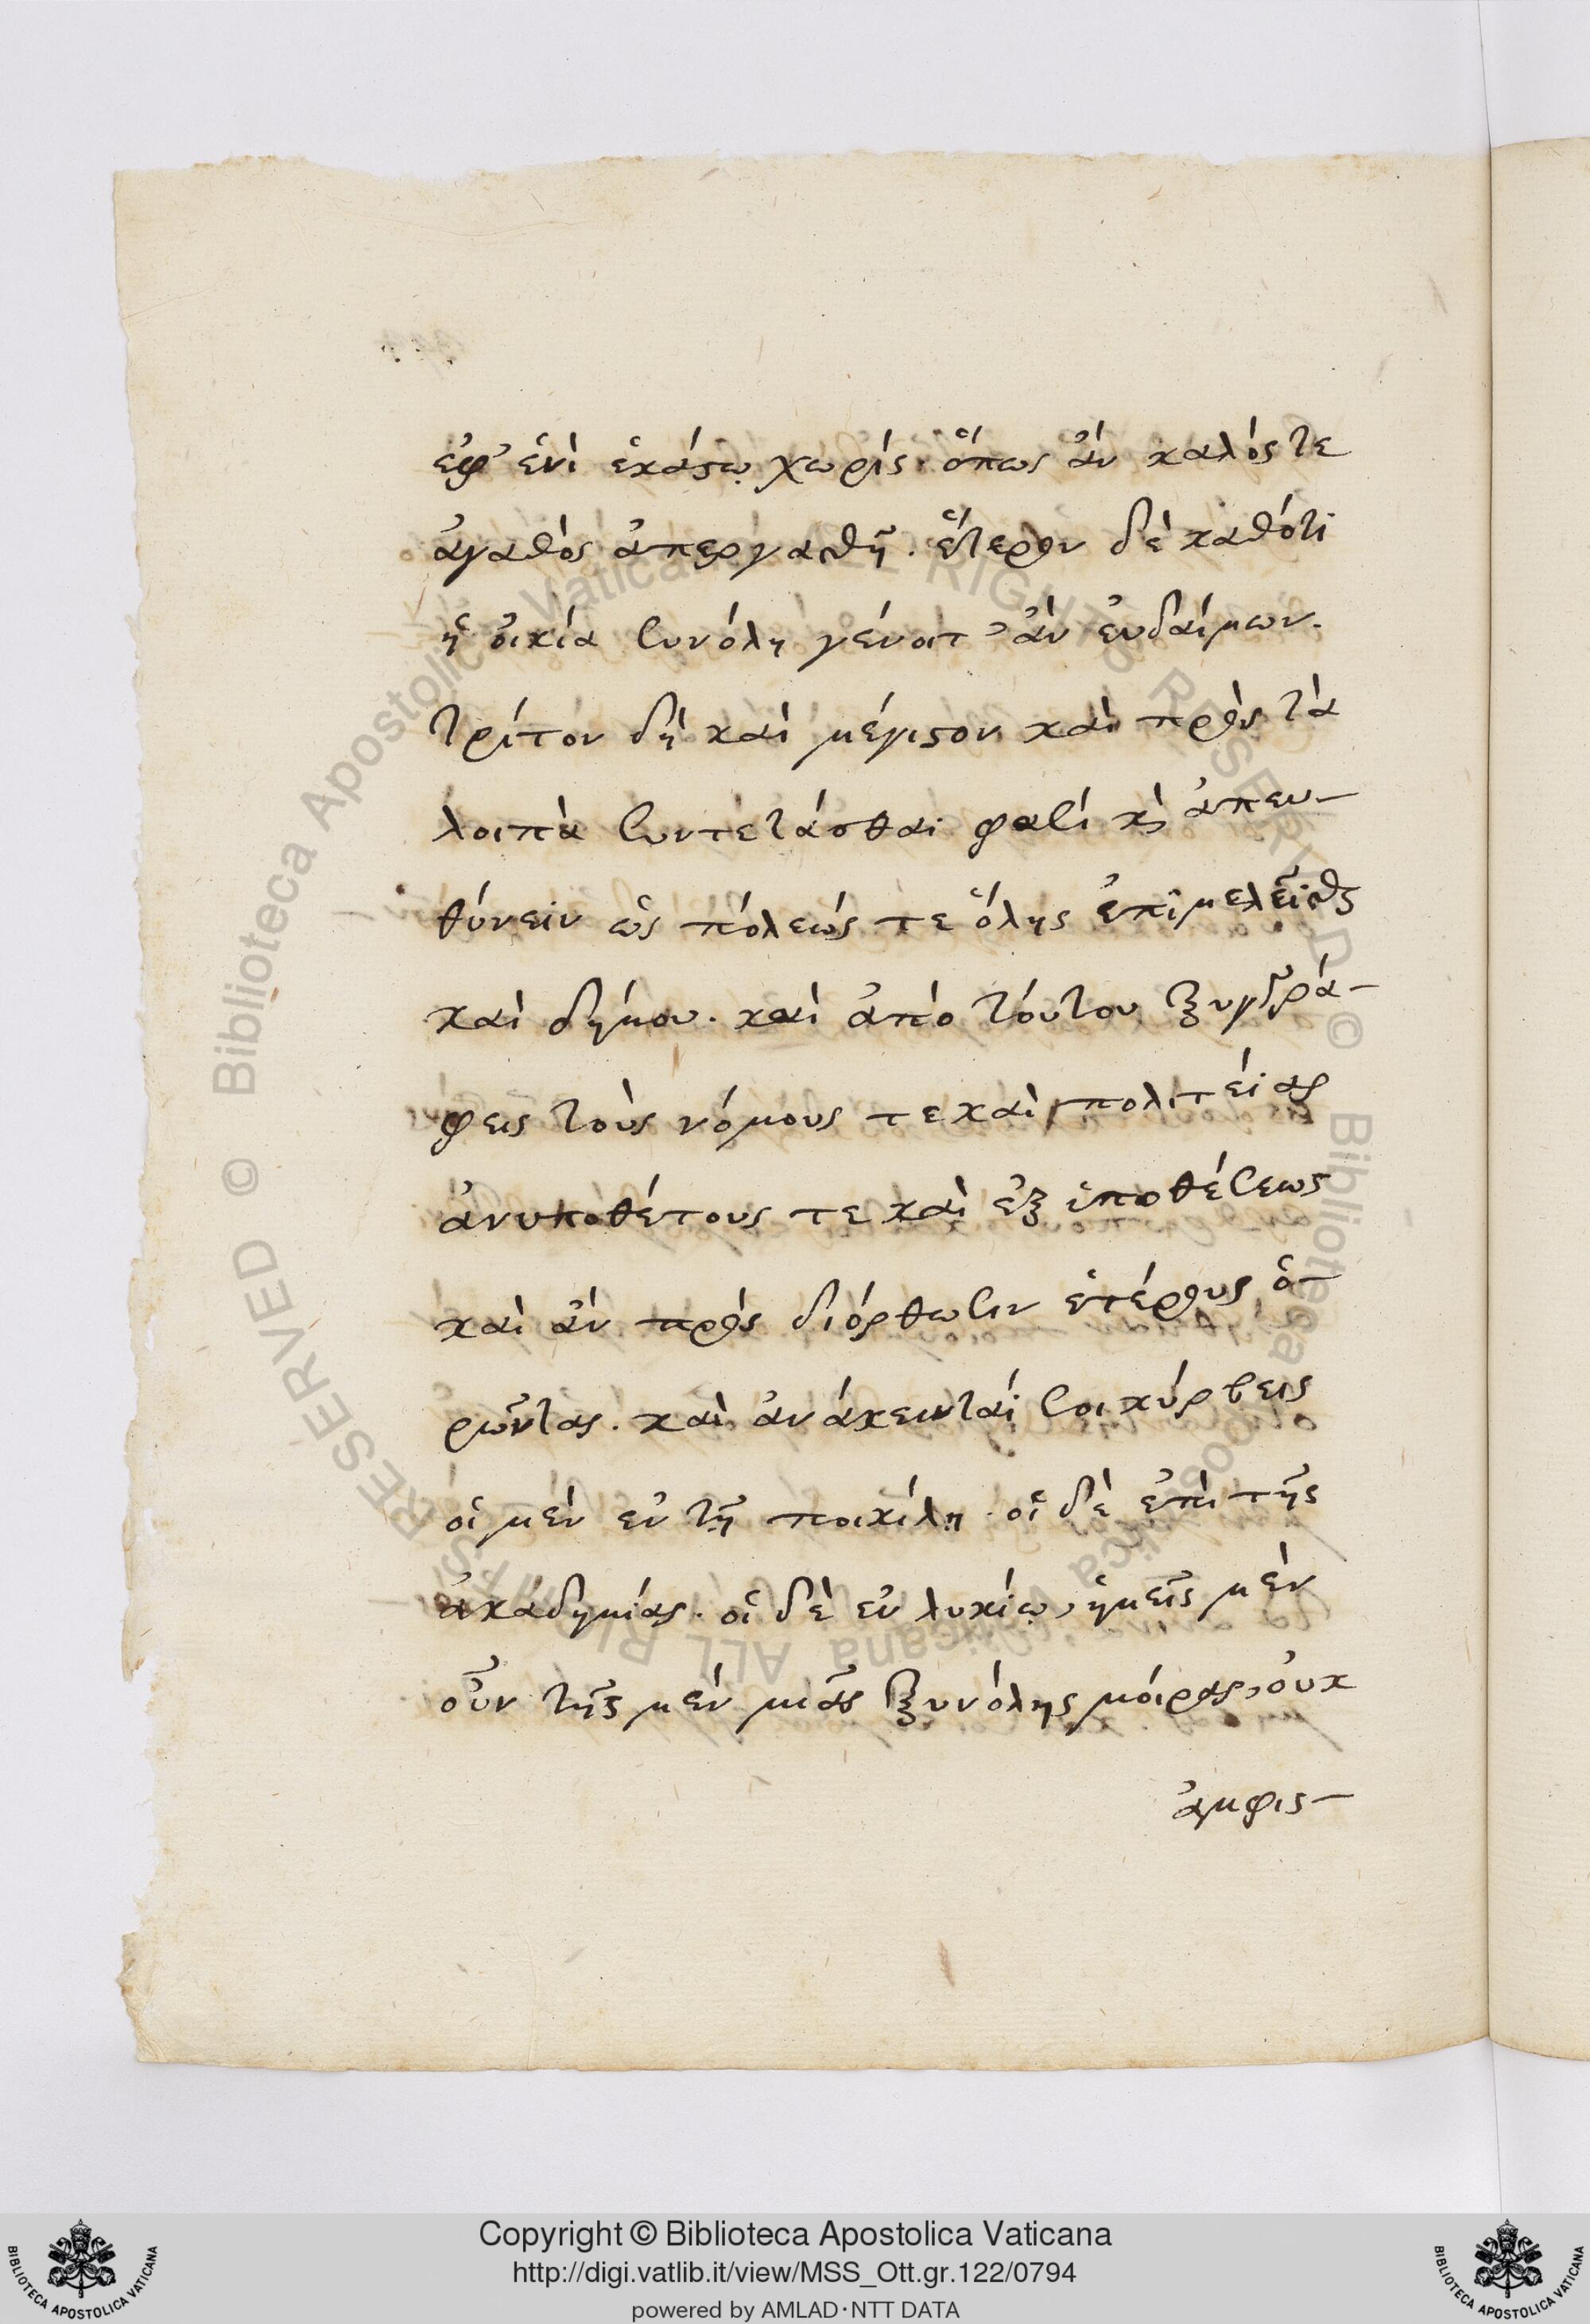 ἐφ' ἑνὶ ἑκάστῳ χωρίς· ὅπως ἂν καλός τε
ἀγαθὸς ἀπεργασθῇ. ἕτερον δὲ καθότι
ἡ οἰκία συνόλη γένοιτ' ἂν ἐυδαίμων.
τρίτον δὴ καὶ μέγιστον καὶ πρὸς τὰ
λοιπὰ συντετάσθαι φασί κ̀ ἀπευ-
θύνειν ὡς πόλεώς τε ὅλης ἐπιμελεῖσθαι
καὶ δήμου. καὶ ἀπὸ τόυτου ξυγγρά-
φεις τοὺς νόμους τε καὶ πολιτείας
ἀνυποθέτους τε καὶ ἐξ ὑποθέσεως
καὶ ἂν πρὸς διόρθωσιν ἑτέρους ὁ-
ρῶντας. καὶ ἀνάκεινταί σοι κύρβεις
οἱ μὲν ἐν τῇ ποικίλῃ. οἱ δὲ ἐπὶ τῆς
ἀκαδημίας. οἱ δὲ ἐν λυκίῳ, ἡμεῖς μὲν
οὖν τῆς μὲν μιᾶς ξυνόλης μόιρας, ὀυκ
ἀμφισ-
© Biblioteca Apostolica Vaticana ALL RIGHTS RESERVED © Biblioteca Apostolica Vaticana ALL RIGHTS RESERVED
Copyright © Biblioteca Apostolica Vaticana
http://digi.vatlib.it/view/MSS_Ott.gr.122/0794
powered by AMLAD·NTT DATA
BIBLIOTECA APOSTOLICA VATICANA
BIBLIOTECA APOSTOLICA VATICANA